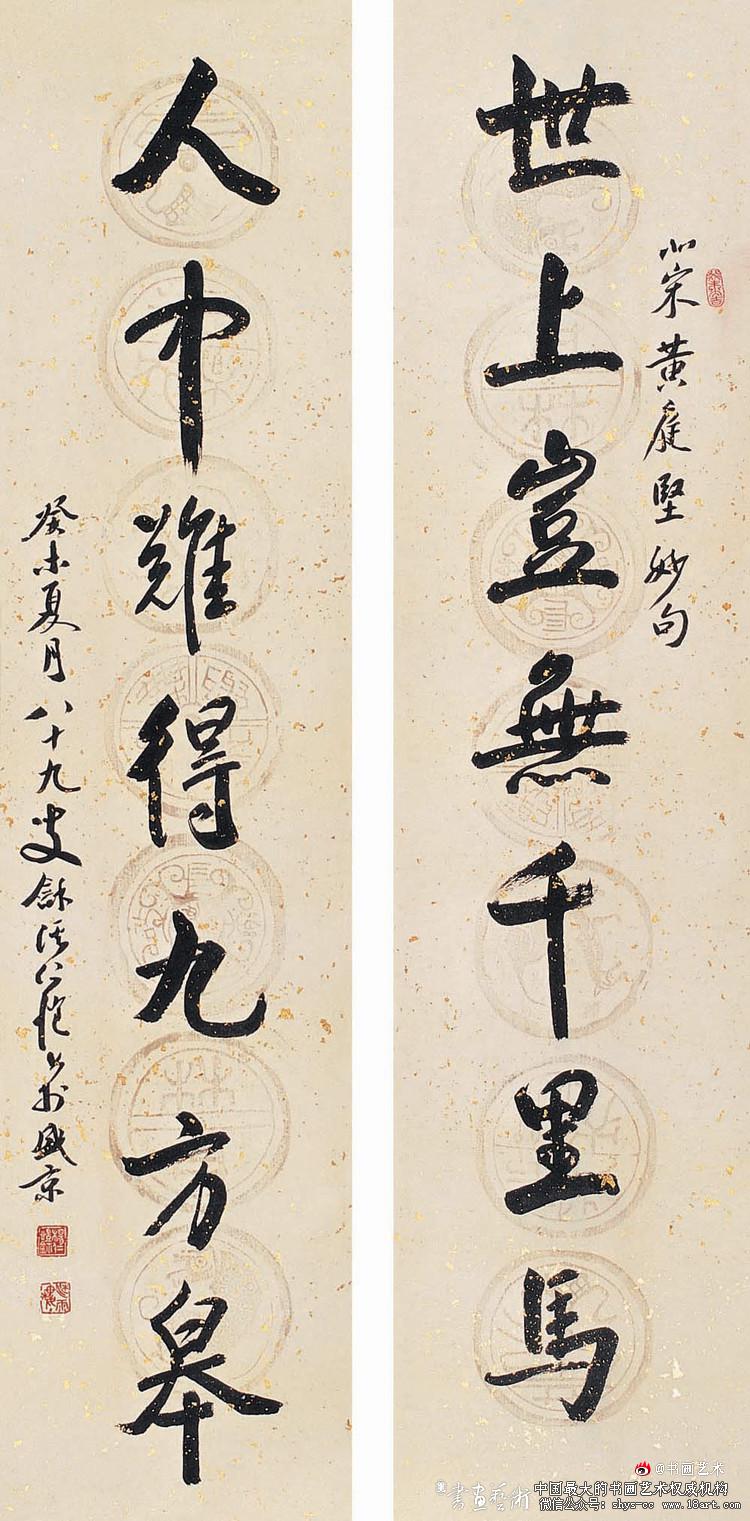 北宋黄庭坚妙句
世上豈無千里馬
人中難得九方皋
癸未夏月八十九叟龢溪公愷书於盛京
@书画艺术
書畫藝術
中国最大的书画艺术权威机构
微信公众号：shys-cc www.18art.com